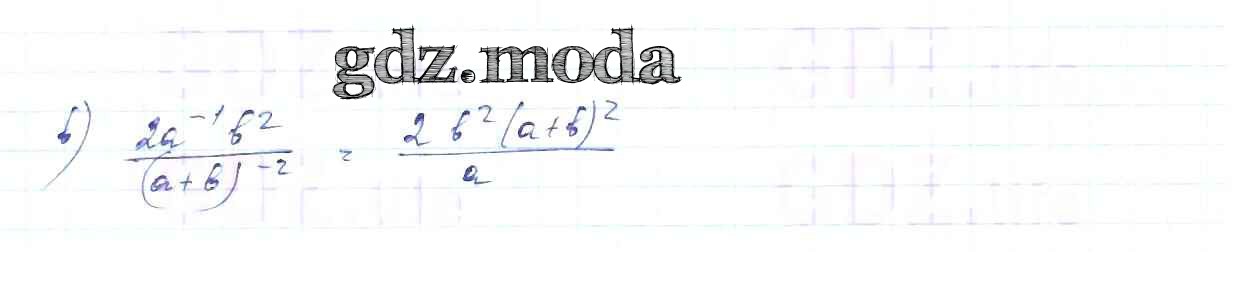 gdz.moda
в) \frac{2a^{-1}b^2}{(a+b)^{-2}} = \frac{2 b^2 (a+b)^2}{a}